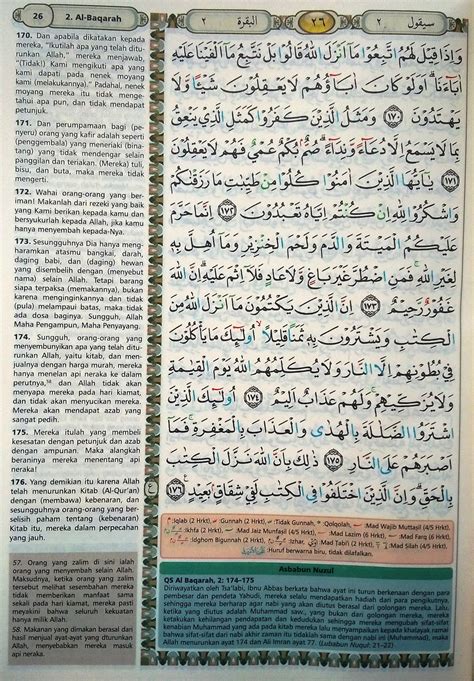 26
2. Al-Baqarah
البقرة
٢
٢٦
سيقول
٢
170. Dan apabila dikatakan kepada
mereka, "Ikutilah apa yang telah ditu-
runkan Allah," mereka menjawab,
"(Tidak!) Kami mengikuti apa yang
kami dapati pada nenek moyang
kami (melakukannya)." Padahal, nenek
moyang mereka itu tidak menge-
tahui apa pun, dan tidak mendapat
petunjuk.
171. Dan perumpamaan bagi (pe-
nyeru) orang yang kafir adalah seperti
(penggembala) yang meneriaki (bina-
tang) yang tidak mendengar selain
panggilan dan teriakan. (Mereka) tuli,
bisu, dan buta, maka mereka tidak
mengerti.
172. Wahai orang-orang yang ber-
iman! Makanlah dari rezeki yang baik
yang Kami berikan kepada kamu dan
bersyukurlah kepada Allah, jika kamu
hanya menyembah kepada-Nya.
173. Sesungguhnya Dia hanya meng-
haramkan atasmu bangkai, darah,
daging babi, dan (daging) hewan
yang disembelih dengan (menyebut
nama) selain Allah. Tetapi barang
siapa terpaksa (memakannya), bukan
karena menginginkannya dan tidak
(pula) melampaui batas, maka tidak
ada dosa baginya. Sungguh, Allah
Maha Pengampun, Maha Penyayang.
174. Sungguh, orang-orang yang
menyembunyikan apa yang telah ditu-
runkan Allah, yaitu kitab, dan men-
jualnya dengan harga murah, mereka
hanya menelan api neraka ke dalam
perutnya,58 dan Allah tidak akan
menyapa mereka pada hari kiamat,
dan tidak akan menyucikan mereka.
Mereka akan mendapat azab yang
sangat pedih.
175. Mereka itulah yang membeli
kesesatan dengan petunjuk dan azab
dengan ampunan. Maka alangkah
beraninya mereka menentang api
neraka!
176. Yang demikian itu karena Allah
telah menurunkan Kitab (Al-Qur'an)
dengan (membawa) kebenaran, dan
sesungguhnya orang-orang yang ber-
selisih paham tentang (kebenaran)
Kitab itu, mereka dalam perpecahan
yang jauh.
وَاِذَا قِيْلَ لَهُمُ اتَّبِعُوْا مَآ اَنْزَلَ اللّٰهُ قَالُوْا بَلْ نَتَّبِعُ مَآ اَلْفَيْنَا عَلَيْهِ
اٰبَاۤءَنَا ۗ اَوَلَوْ كَانَ اٰبَاۤؤُهُمْ لَا يَعْقِلُوْنَ شَيْـًٔا وَّلَا
يَهْتَدُوْنَ ﴿١٧٠﴾ وَمَثَلُ الَّذِيْنَ كَفَرُوْا كَمَثَلِ الَّذِيْ يَنْعِقُ
بِمَا لَا يَسْمَعُ اِلَّا دُعَاۤءً وَّنِدَاۤءً ۗ صُمٌّ ۢ بُكْمٌ عُمْيٌ فَهُمْ لَا يَعْقِلُوْنَ
﴿١٧١﴾ يٰٓاَيُّهَا الَّذِيْنَ اٰمَنُوْا كُلُوْا مِنْ طَيِّبٰتِ مَا رَزَقْنٰكُمْ
وَاشْكُرُوْا لِلّٰهِ اِنْ كُنْتُمْ اِيَّاهُ تَعْبُدُوْنَ ﴿١٧٢﴾ اِنَّمَا حَرَّمَ
عَلَيْكُمُ الْمَيْتَةَ وَالدَّمَ وَلَحْمَ الْخِنْزِيْرِ وَمَآ اُهِلَّ بِهٖ
لِغَيْرِ اللّٰهِ ۚ فَمَنِ اضْطُرَّ غَيْرَ بَاغٍ وَّلَا عَادٍ فَلَآ اِثْمَ عَلَيْهِ ۗ اِنَّ اللّٰهَ
غَفُوْرٌ رَّحِيْمٌ ﴿١٧٣﴾ اِنَّ الَّذِيْنَ يَكْتُمُوْنَ مَآ اَنْزَلَ اللّٰهُ مِنَ
الْكِتٰبِ وَيَشْتَرُوْنَ بِهٖ ثَمَنًا قَلِيْلًا ۙ اُولٰۤىِٕكَ مَا يَأْكُلُوْنَ
فِيْ بُطُوْنِهِمْ اِلَّا النَّارَ وَلَا يُكَلِّمُهُمُ اللّٰهُ يَوْمَ الْقِيٰمَةِ
وَلَا يُزَكِّيْهِمْ ۖ وَلَهُمْ عَذَابٌ اَلِيْمٌ ﴿١٧٤﴾ اُولٰۤىِٕكَ الَّذِيْنَ
اشْتَرَوُا الضَّلٰلَةَ بِالْهُدٰى وَالْعَذَابَ بِالْمَغْفِرَةِ ۚ فَمَآ
اَصْبَرَهُمْ عَلَى النَّارِ ﴿١٧٥﴾ ذٰلِكَ بِاَنَّ اللّٰهَ نَزَّلَ الْكِتٰبَ
بِالْحَقِّ ۗ وَاِنَّ الَّذِيْنَ اخْتَلَفُوْا فِى الْكِتٰبِ لَفِيْ شِقَاقٍ ۢ بَعِيْدٍ ﴿١٧٦﴾
:Iqlab (2 Hrkt), :Gunnah (2 Hrkt), :Tidak Gunnah, :Qolqolah, :Mad Wajib Muttasil (4/5 Hrkt),
:Ikhfa (2 Hrkt), :Mad Jaiz Munfasil (4/5 Hrkt), :Mad Lazim (6 Hrkt), :Mad Farq (6 Hrkt),
:Idghom Bigunnah (2 Hrkt), :Izhar, :Mad Tabi'i (2 Hrkt), :Mad Silah (4/5 Hrkt),
:Huruf berwarna biru, tidak dilafalkan.
57. Orang yang zalim di sini ialah
orang yang menyembah selain Allah.
Maksudnya, ketika orang yang zalim
tersebut melihat sesembahan mereka
tidak memberikan manfaat sama
sekali pada hari kiamat, mereka pasti
meyakini bahwa seluruh kekuatan
hanya milik Allah.
58. Makanan yang dimakan berasal dari
hasil menjual ayat-ayat yang diturunkan
Allah, menyebabkan mereka masuk
api neraka.
Asbabun Nuzul
QS Al Baqarah, 2: 174-175
Diriwayatkan oleh Tsa'labi, Ibnu Abbas berkata bahwa ayat ini turun berkenaan dengan para
pembesar dan pendeta Yahudi, mereka selalu mendapatkan hadiah dari para pengikutnya
sehingga mereka berharap agar nabi yang akan diutus berasal dari golongan mereka. Lalu,